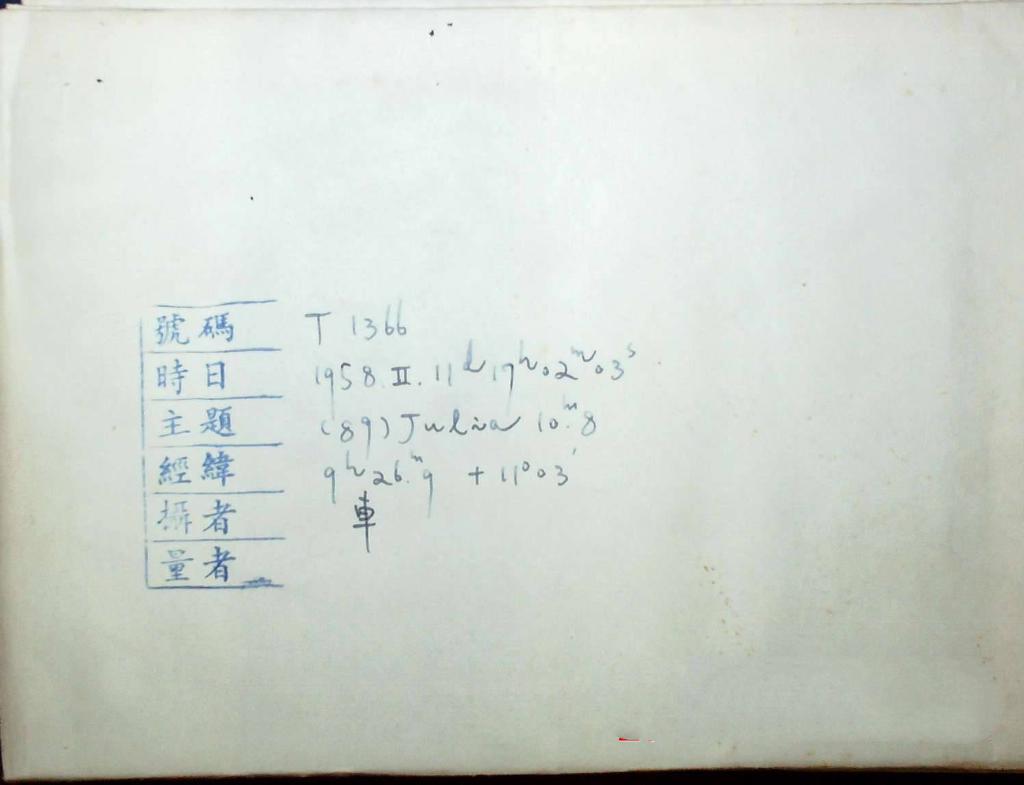 號碼 T 1366
時日 1958. II. 11ᵈ 17ʰ02ᵐ03ˢ
主題 (89) Julia 10ᵐ.8
經緯 9ʰ26ᵐ.9 +11°03′
攝者 車
量者